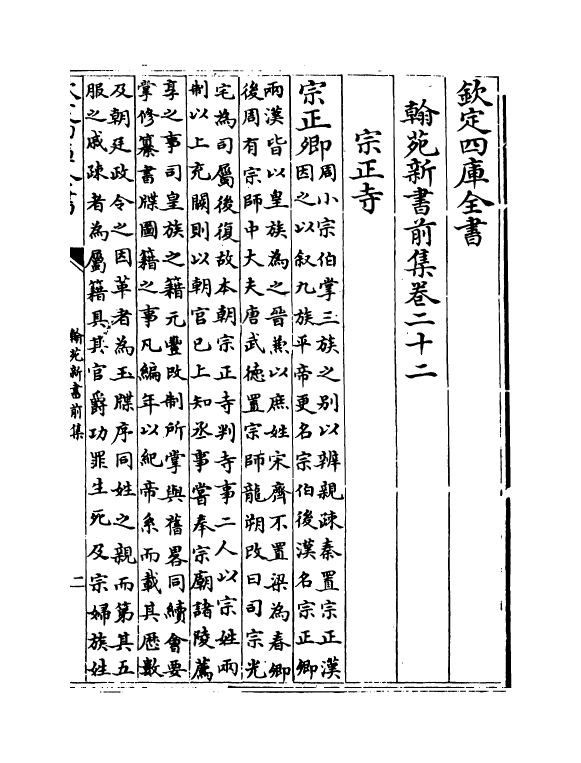 欽定四庫全書
翰苑新書前集卷二十二
宗正寺
宗正卿周小宗伯掌三族之别以辨親疎秦置宗正漢
因之以叙九族平帝更名宗伯後漢名宗正卿
兩漢皆以皇族為之晉兼以庶姓宋齊不置梁為春卿
後周有宗師中大夫唐武德置宗師龍朔改曰司宗光
宅為司屬後復故本朝宗正寺判寺事二人以宗姓兩
制以上充闕則以朝官已上知丞事嘗奉宗廟諸陵薦
享之事司皇族之籍元豐改制所掌與舊畧同續會要
掌修纂書牒圖籍之事凡編年以紀帝系而載其歴數
及朝廷政令之因革者為玉牒序同姓之親而第其五
服之戚疎者為屬籍具其官爵功罪生死及宗婦族姓
翰苑新書前集
二